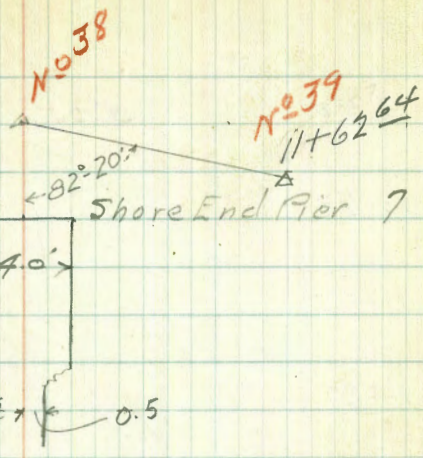 Nº 38
Nº 39
11+62 64
82°-20'
Shore End Pier 7
4.0'
0.5